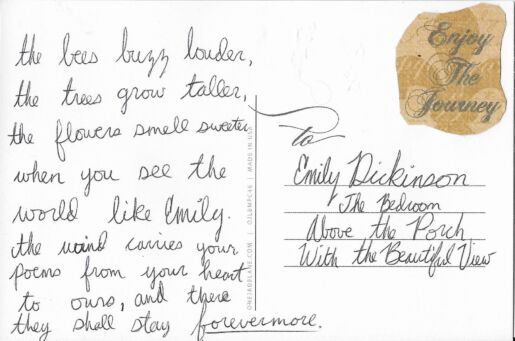 the bees buzz louder,
the trees grow taller,
the flowers smell sweeter
when you see the
world like Emily.
the wind carries your
poems from your heart
to ours, and there
they shall stay forevermore.
ONEJARPLANE.COM | 02LEMPC46 | MADE IN USA
Enjoy
The
Journey
to
Emily Dickinson
The Bedroom
Above the Porch
With the Beautiful View